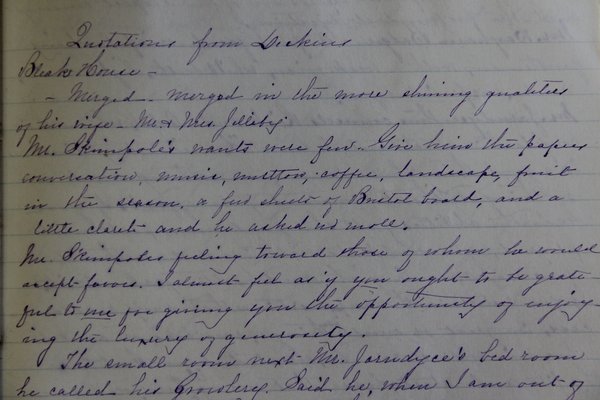 Quotations from Dickins
Bleak House -
- Merged - merged in the more shining qualities
of his wife - Mr & Mrs Jelleby
Mr. Skimpole's wants were few. Give him the papers
conversation, music, mutton, coffee, landscape, fruit
in the season, a few sheets of Bristol board, and a
little claret and he asked no more.
Mr Skimpoles feeling toward those of whom he would
accept favors. I almost feel as if you ought to be grate-
ful to me for giving you the opportunity of enjoy-
ing the luxury of generosity.
The small room next Mr. Jarndyce's bed room
he called his Growlery. Said he, when I am out of